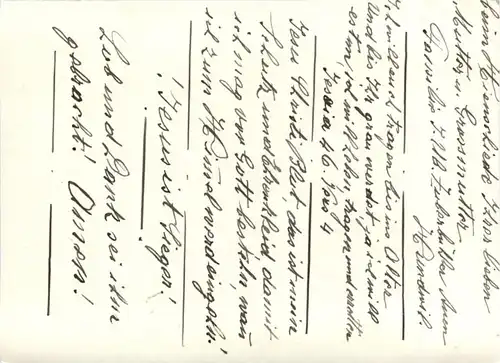 beim Heimgang Ihrer lieben
Mutter u. Grossmutter
Ich will euch tragen bis ins Alter
und bis Ihr grau werdet, ja ich will
es tun, ich will heben, tragen und erretten
Jesaia 46. Vers 4
Jesu Christi Blut, das ist mein
Schutz und Ehrenkleid damit
ich mag vor Gott bestehn, wenn
ich zum Himmel werd eingehn!
! Jesus ist Sieger!
Lob und Dank sei ihm
gebracht! Amen!